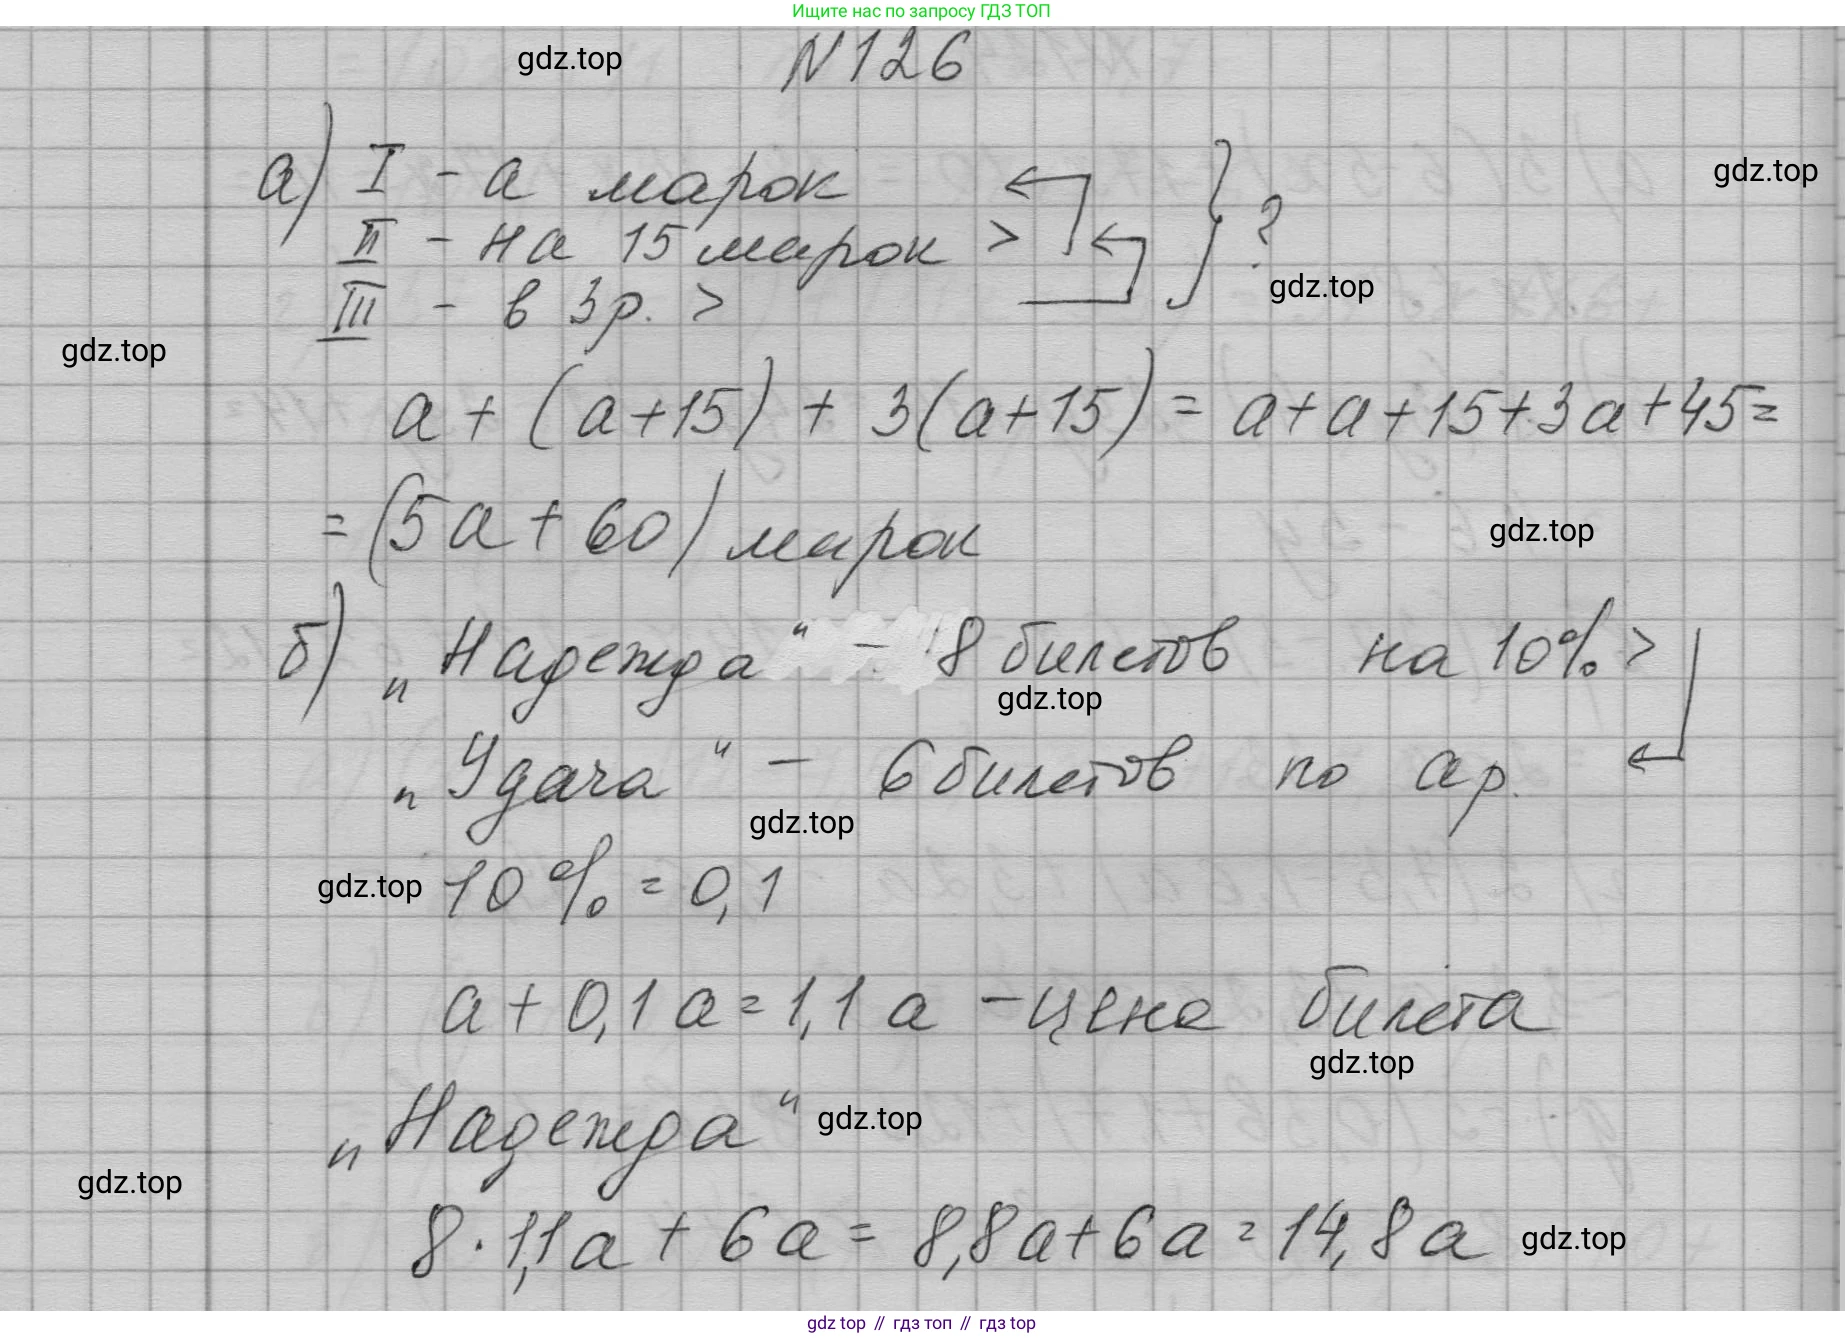 Ищите нас по запросу ГДЗ ТОП
gdz.top
N 126
а) I - а марок
gdz.top
II - на 15 марок >
} ?
gdz.top
III - в 3 р. >
gdz.top
a + (a+15) + 3(a+15) = a+a+15+3a+45=
= (5a+60) марок
gdz.top
б) „Надежда“ - 8 билетов на 10% >
gdz.top
„Удача“ - 6 билетов по а р.
gdz.top
gdz.top
10% = 0,1
a + 0,1a = 1,1a - цена билета
gdz.top
„Надежда“
gdz.top
gdz.top
8 · 1,1a + 6a = 8,8a+6a = 14,8a
gdz.top
gdz top // гдз топ // гдз top